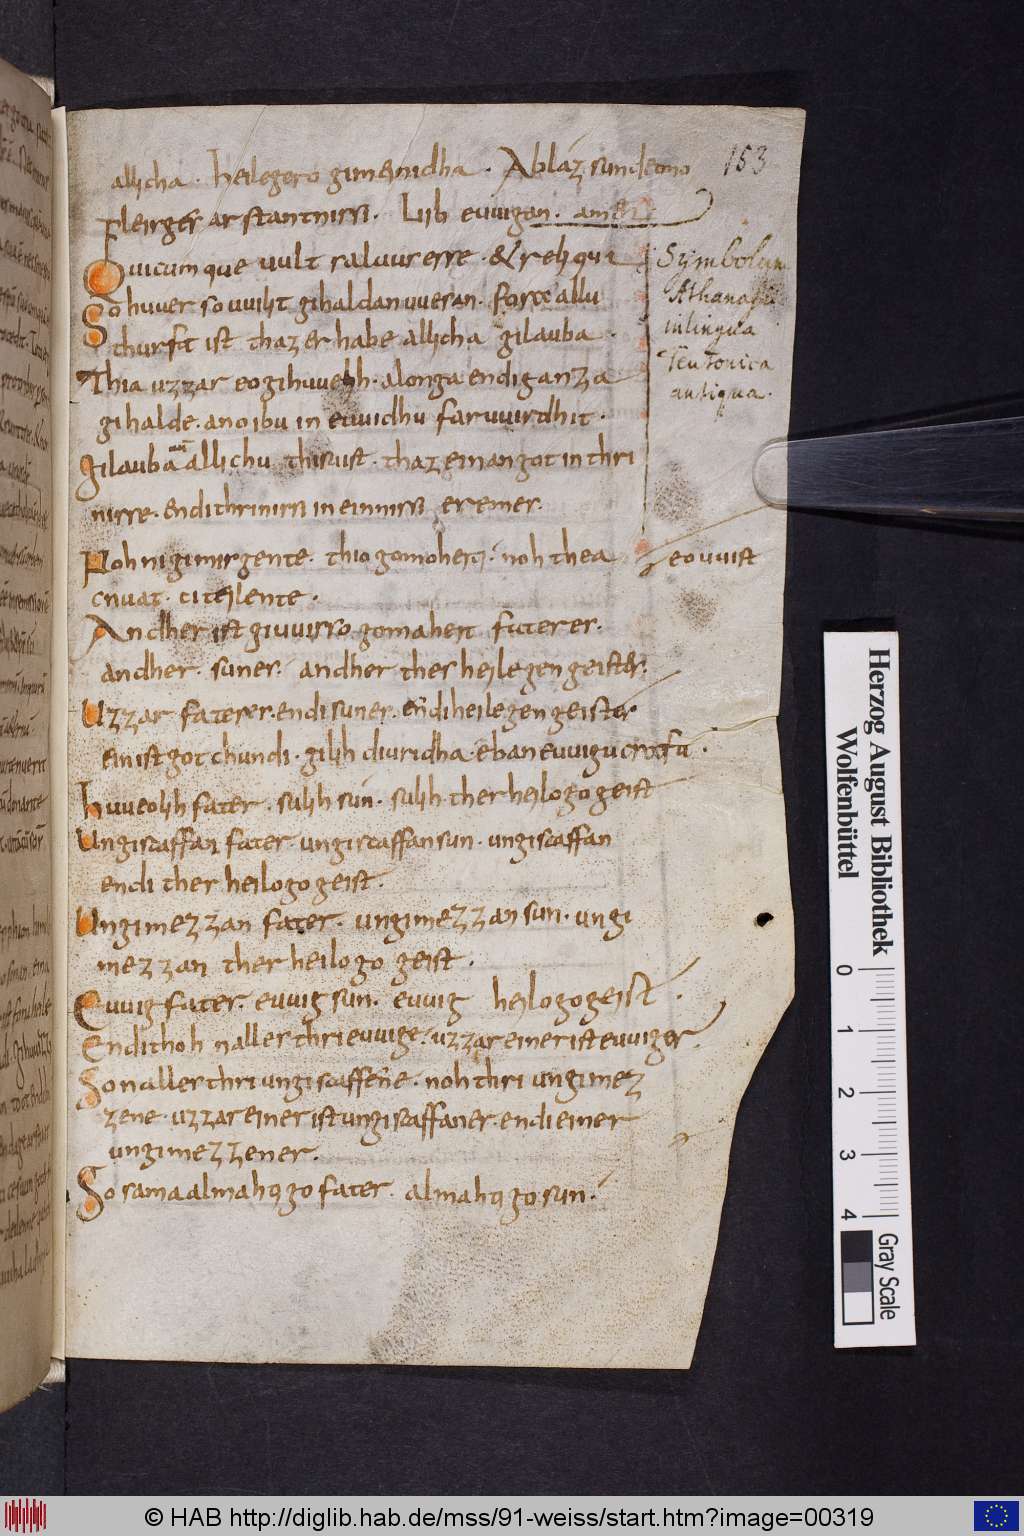 allicha . heilegero gimeinidha . Ablaz sundeono
fleisges arstantnissi . Liib euuigan . amen
153
Quicumque uult saluus esse . & reliqua
So huuer so uuilit gihaldan uuesan . fora allu
thurft ist thaz er habe allicha gilauba .
Thia uzzar eogihuuelih . alonga endi ganza
gihalde . ano ibu in euuidhu faruuirdhit .
gilauba allichu thisu ist . thaz einan got in thri
nisse . endi thrinissi in einnissi eremes .
Symbolum
Athanasii
in lingua
Teutonica
antiqua .
Noh ni gimisgente . thio gomoheiti . noh thea
eouuist
cnuat . citeilente .
Andher ist giuuisso gomaheit fateres .
andher . sunes . andher thes heilegen geistes .
Uzzar fateres . endi sunes . endi heilegen geistes
ein ist got chundi . gilih diuridha . eban euuigu craft .
huueolih fater . sulih sun . sulih ther heilogo geist
Ungiscaffan fater . ungiscaffan sun . ungiscaffan
endi ther heilogo geist .
Ungimezzan fater . ungimezzan sun . ungi
mezzan ther heilogo geist .
Euuig fater . euuig sun . euuig heilogo geist .
Endi thoh nalles thri euuige . uzzar einer ist euuiger .
So nalles thri ungiscaffene . noh thri ungimez
zene . uzzar einer ist ungiscaffaner . endi einer
ungimezzener .
So sama almahtigo fater . almahtigo sun .
Herzog August Bibliothek
Wolfenbüttel
0 1 2 3 4
Gray Scale
© HAB http://diglib.hab.de/mss/91-weiss/start.htm?image=00319